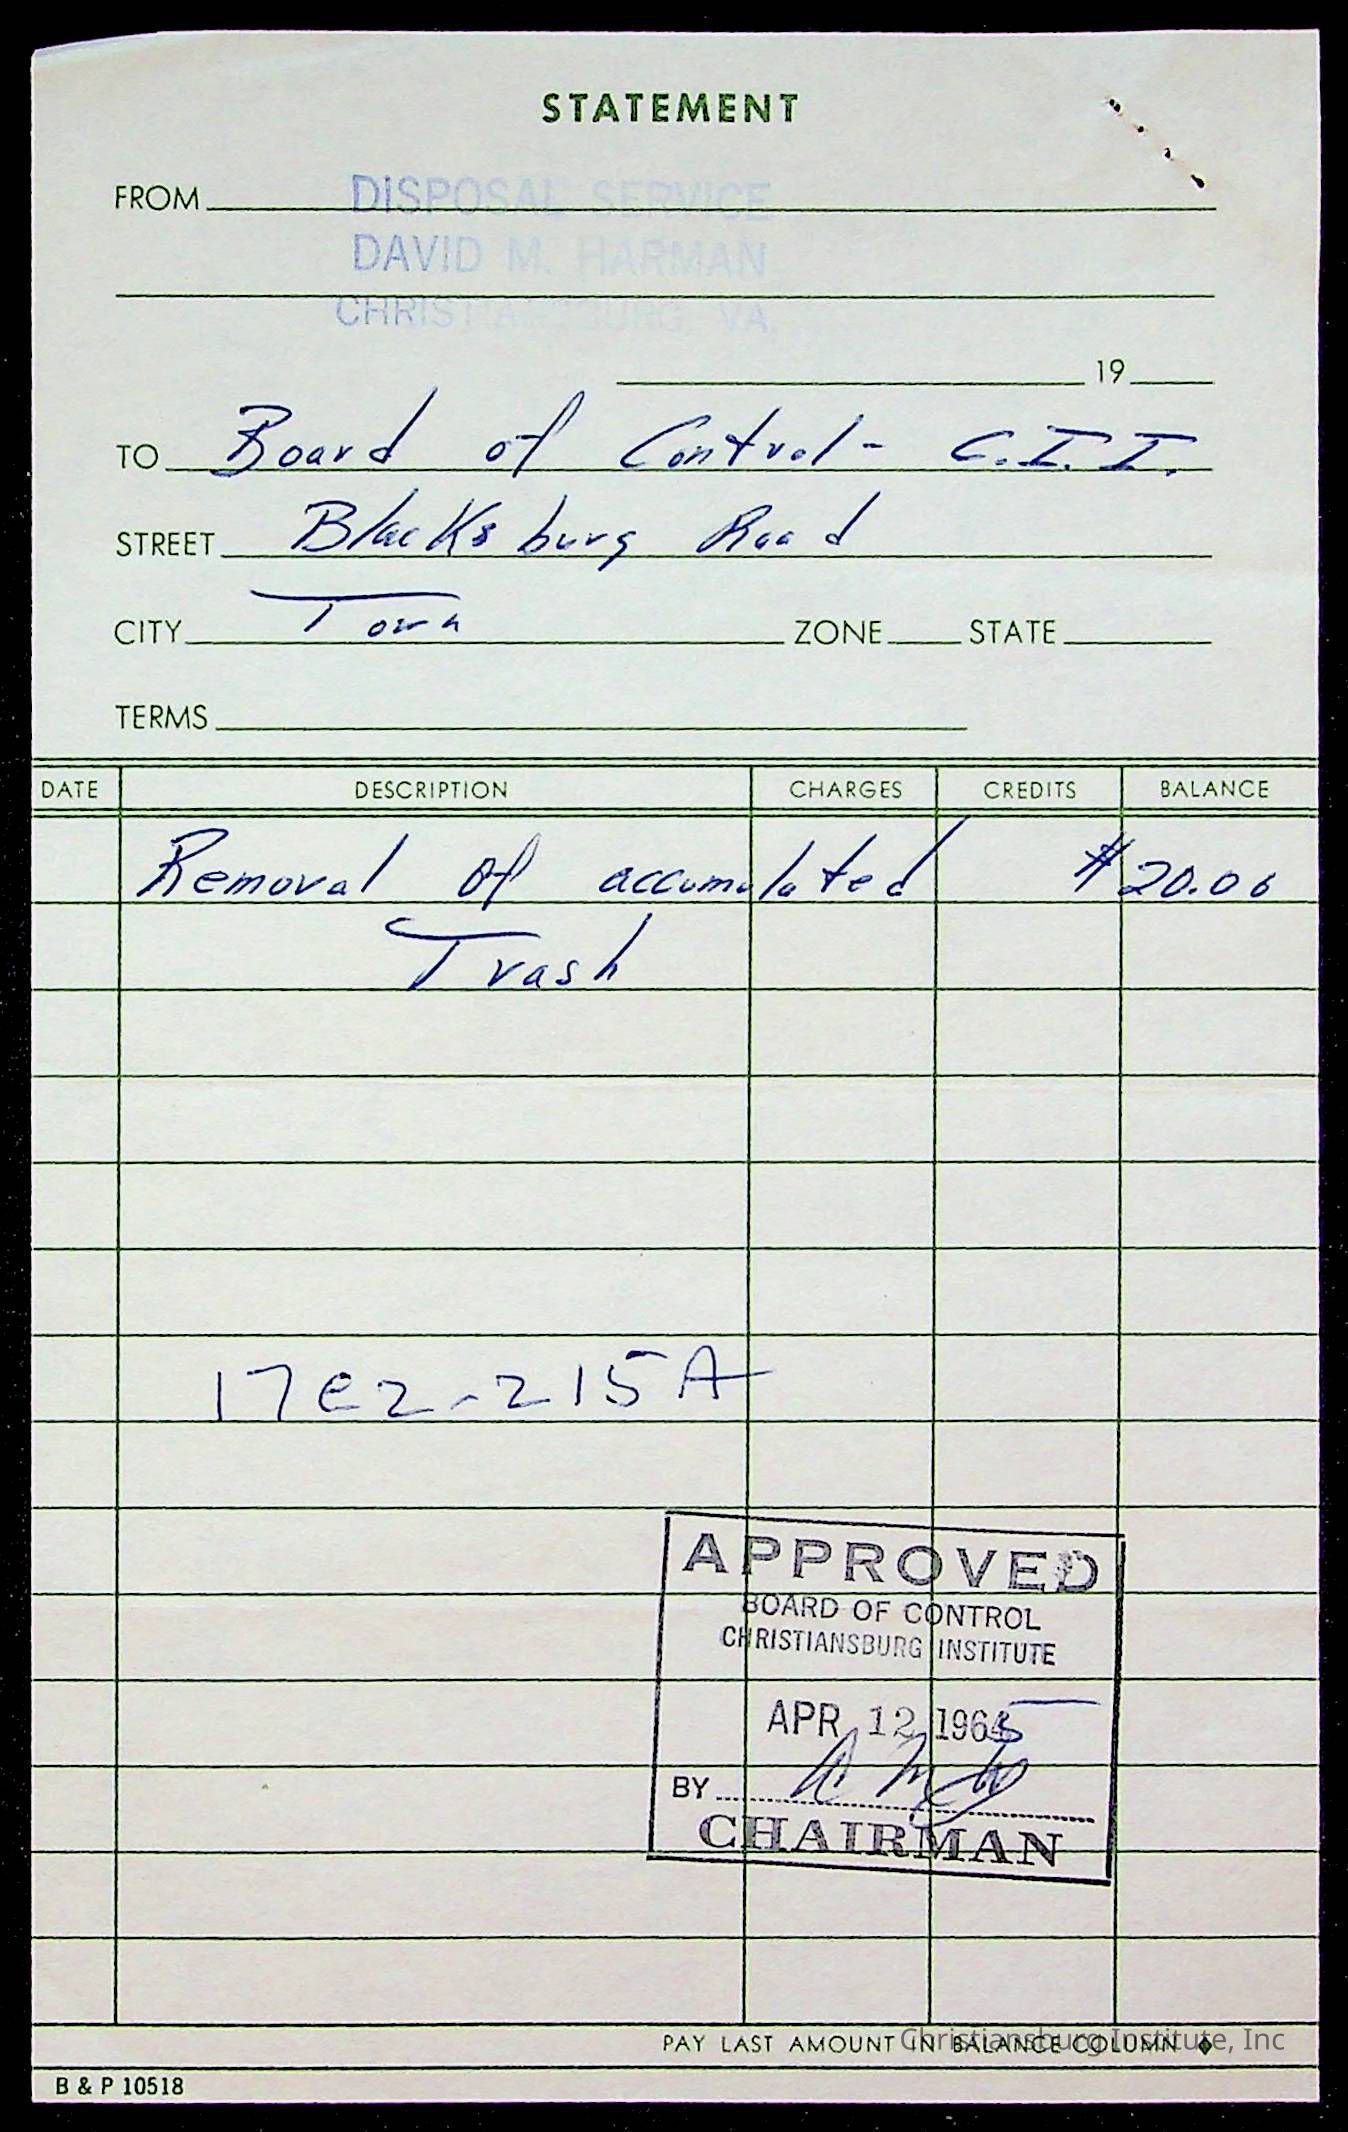 STATEMENT
FROM DISPOSAL SERVICE
DAVID M. HARMAN
CHRISTIANSBURG, VA.
19
TO Board of Control - C.I.I.
STREET Blacksburg Road
CITY Town ZONE STATE
TERMS
DATE DESCRIPTION CHARGES CREDITS BALANCE
Removal of accumulated $20.00
Trash
17e2-215A
APPROVED
BOARD OF CONTROL
CHRISTIANSBURG INSTITUTE
APR 12 1965
BY
CHAIRMAN
PAY LAST AMOUNT IN BALANCE COLUMN
Christiansburg Institute, Inc
B & P 10518